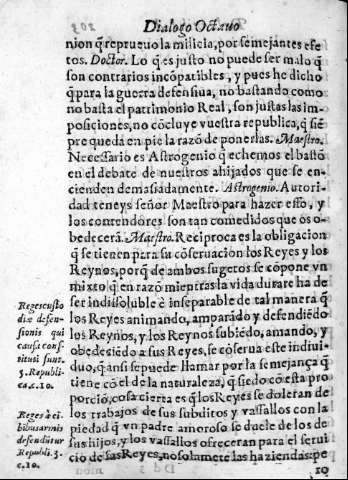 Dialogo Octauo
nion q̃ repruevo la milicia, por semejantes efe
tos. Doctor. Lo q̃ es justo no puede ser malo q̃
son contrarios incõpatibles, y pues he dicho
q̃ para la guerra defensiua, no bastando como
no basta el patrimonio Real, son justas las im-
posiciones, no cõcluye vuestra republica, q̃ siẽ
pre queda en pie la razõ de ponerlas. Maestro.
Necessario es Astrogenio q̃ echemos el bastõ
en el debate de nuestros ahijados que se en-
cienden demasiadamente. Astrogenio. Autori-
dad teneys señor Maestro para hazer esso, y
los contendores son tan comedidos que os o-
bedecerã. Maestro. Reciproca es la obligacion
q̃ se tienen para su cõseruaciõ los Reyes y los
Reynos, porq̃ de ambos sugetos se cõpone vn
mixto q̃ en razõ mientras la vida durare ha de
ser indissoluble è inseparable de tal manera q̃
los Reyes animando, amparãdo y defendiẽdo
los Reynos, y los Reynos subiẽdo, amando, y
obedeciẽdo a sus Reyes, se cõserua este indiui-
duo, q̃ ansi se puede llamar por la semejança q̃
tiene cõ el de la naturaleza, q̃ siẽdo cõ esta pro
porciõ, cosa cierta es q̃ los Reyes se doleran de
los trabajos de sus subditos y vassallos con la
piedad q̃ vn padre amoroso se duele de los de
sus hijos, y los vassallos ofreceran para el serui
cio de sus Reyes, no solamẽte las haziendas, pe
ro
Reges custo
diæ defen-
sionis qui
causa cons-
titusi sunt.
3. Republi-
ca. c. 10.
Reges à ci
bibus armis
defendũtur
Republi. 3.
c. 10.